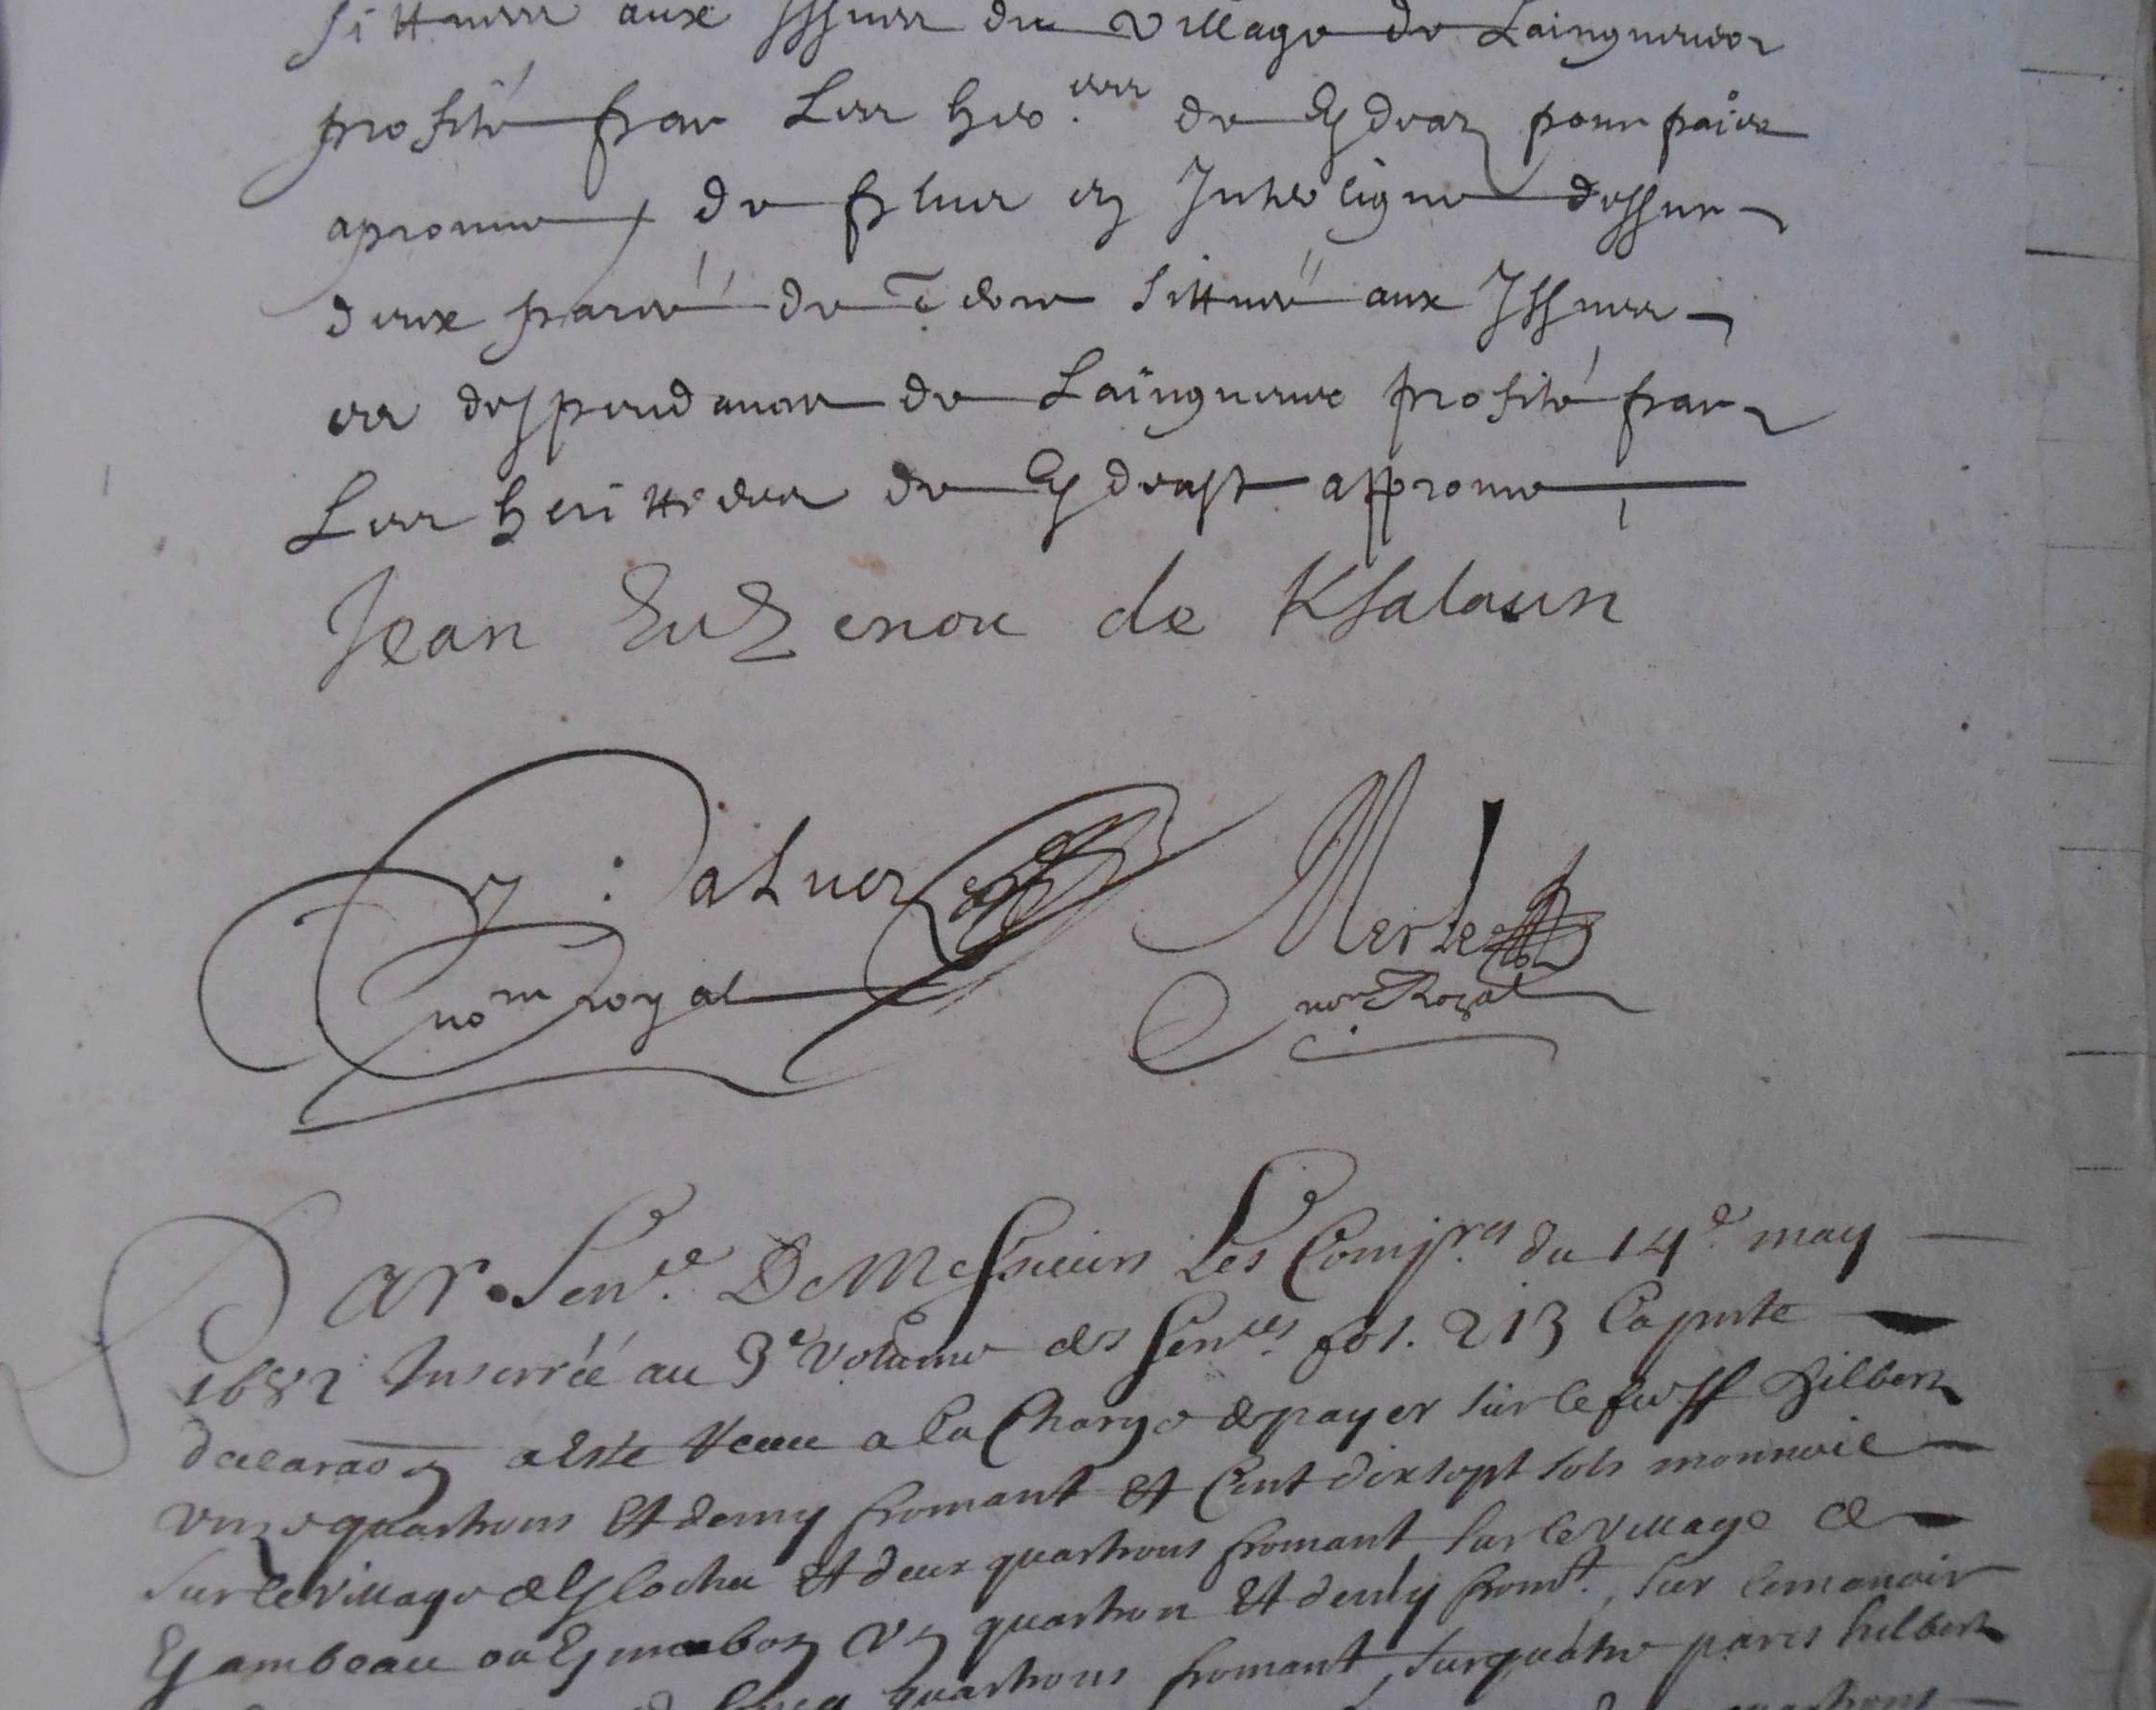 sittuees aux Issues du village de Laingueuez
profité par Les heo.ers de Kdear pour paier
aprouue, de plus en Interligne dessus
deux parcé de terre sittué aux Issues
et despendance de Laingueuez profité par
Les herittiers de Kdrast approuue
Jean EuZenou de Ksalaun
Y : DaLuer
nore royal
Merle
nore Royal
Par Sence De Messieurs Les Comisres du 14e may
1682 Inserrée au 3e volume des Sences fol. 213 La pnte
declaraon a esté Receue a la Charge de payer sur le fieff hilbert
unze quartrons Et demy fromant Et Cent dix sept sols monnoie
Sur le village de Klochu Et deux quartrons fromant sur le village de
Kambeau ou Kmabon Un quartron Et demy fromt, sur le manoir
quartrons fromant, sur quatre parcs hilbert
quartrons